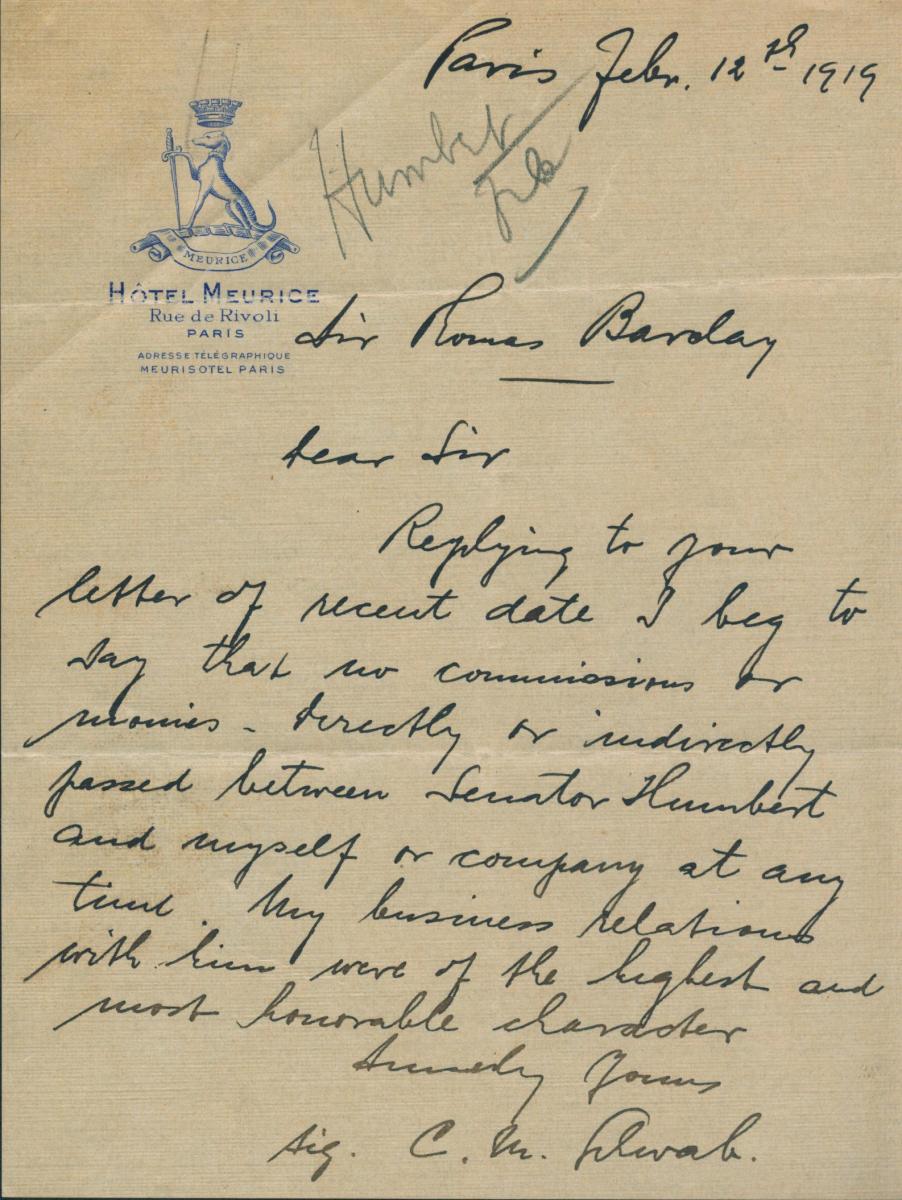 Paris Febr. 12th 1919
Humbert
file
MEURICE
HÔTEL MEURICE
Rue de Rivoli
PARIS
ADRESSE TÉLÉGRAPHIQUE
MEURISOTEL PARIS
Sir Thomas Barclay
Dear Sir
Replying to your
letter of recent date I beg to
say that no commissions or
monies - directly or indirectly
passed between Senator Humbert
and myself or company at any
time. My business relations
with him were of the highest and
most honorable character
Sincerely Yours
sig. C. M. Schwab.